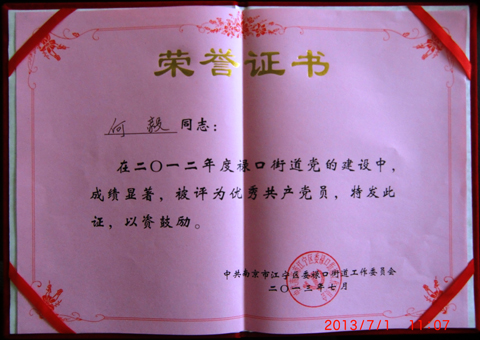 荣誉证书
何毅同志：
在二〇一二年度禄口街道党的建设中，
成绩显著，被评为优秀共产党员，特发此
证，以资鼓励。
中共南京市江宁区委禄口街道工作委员会
二〇一三年七月
2013/7/1